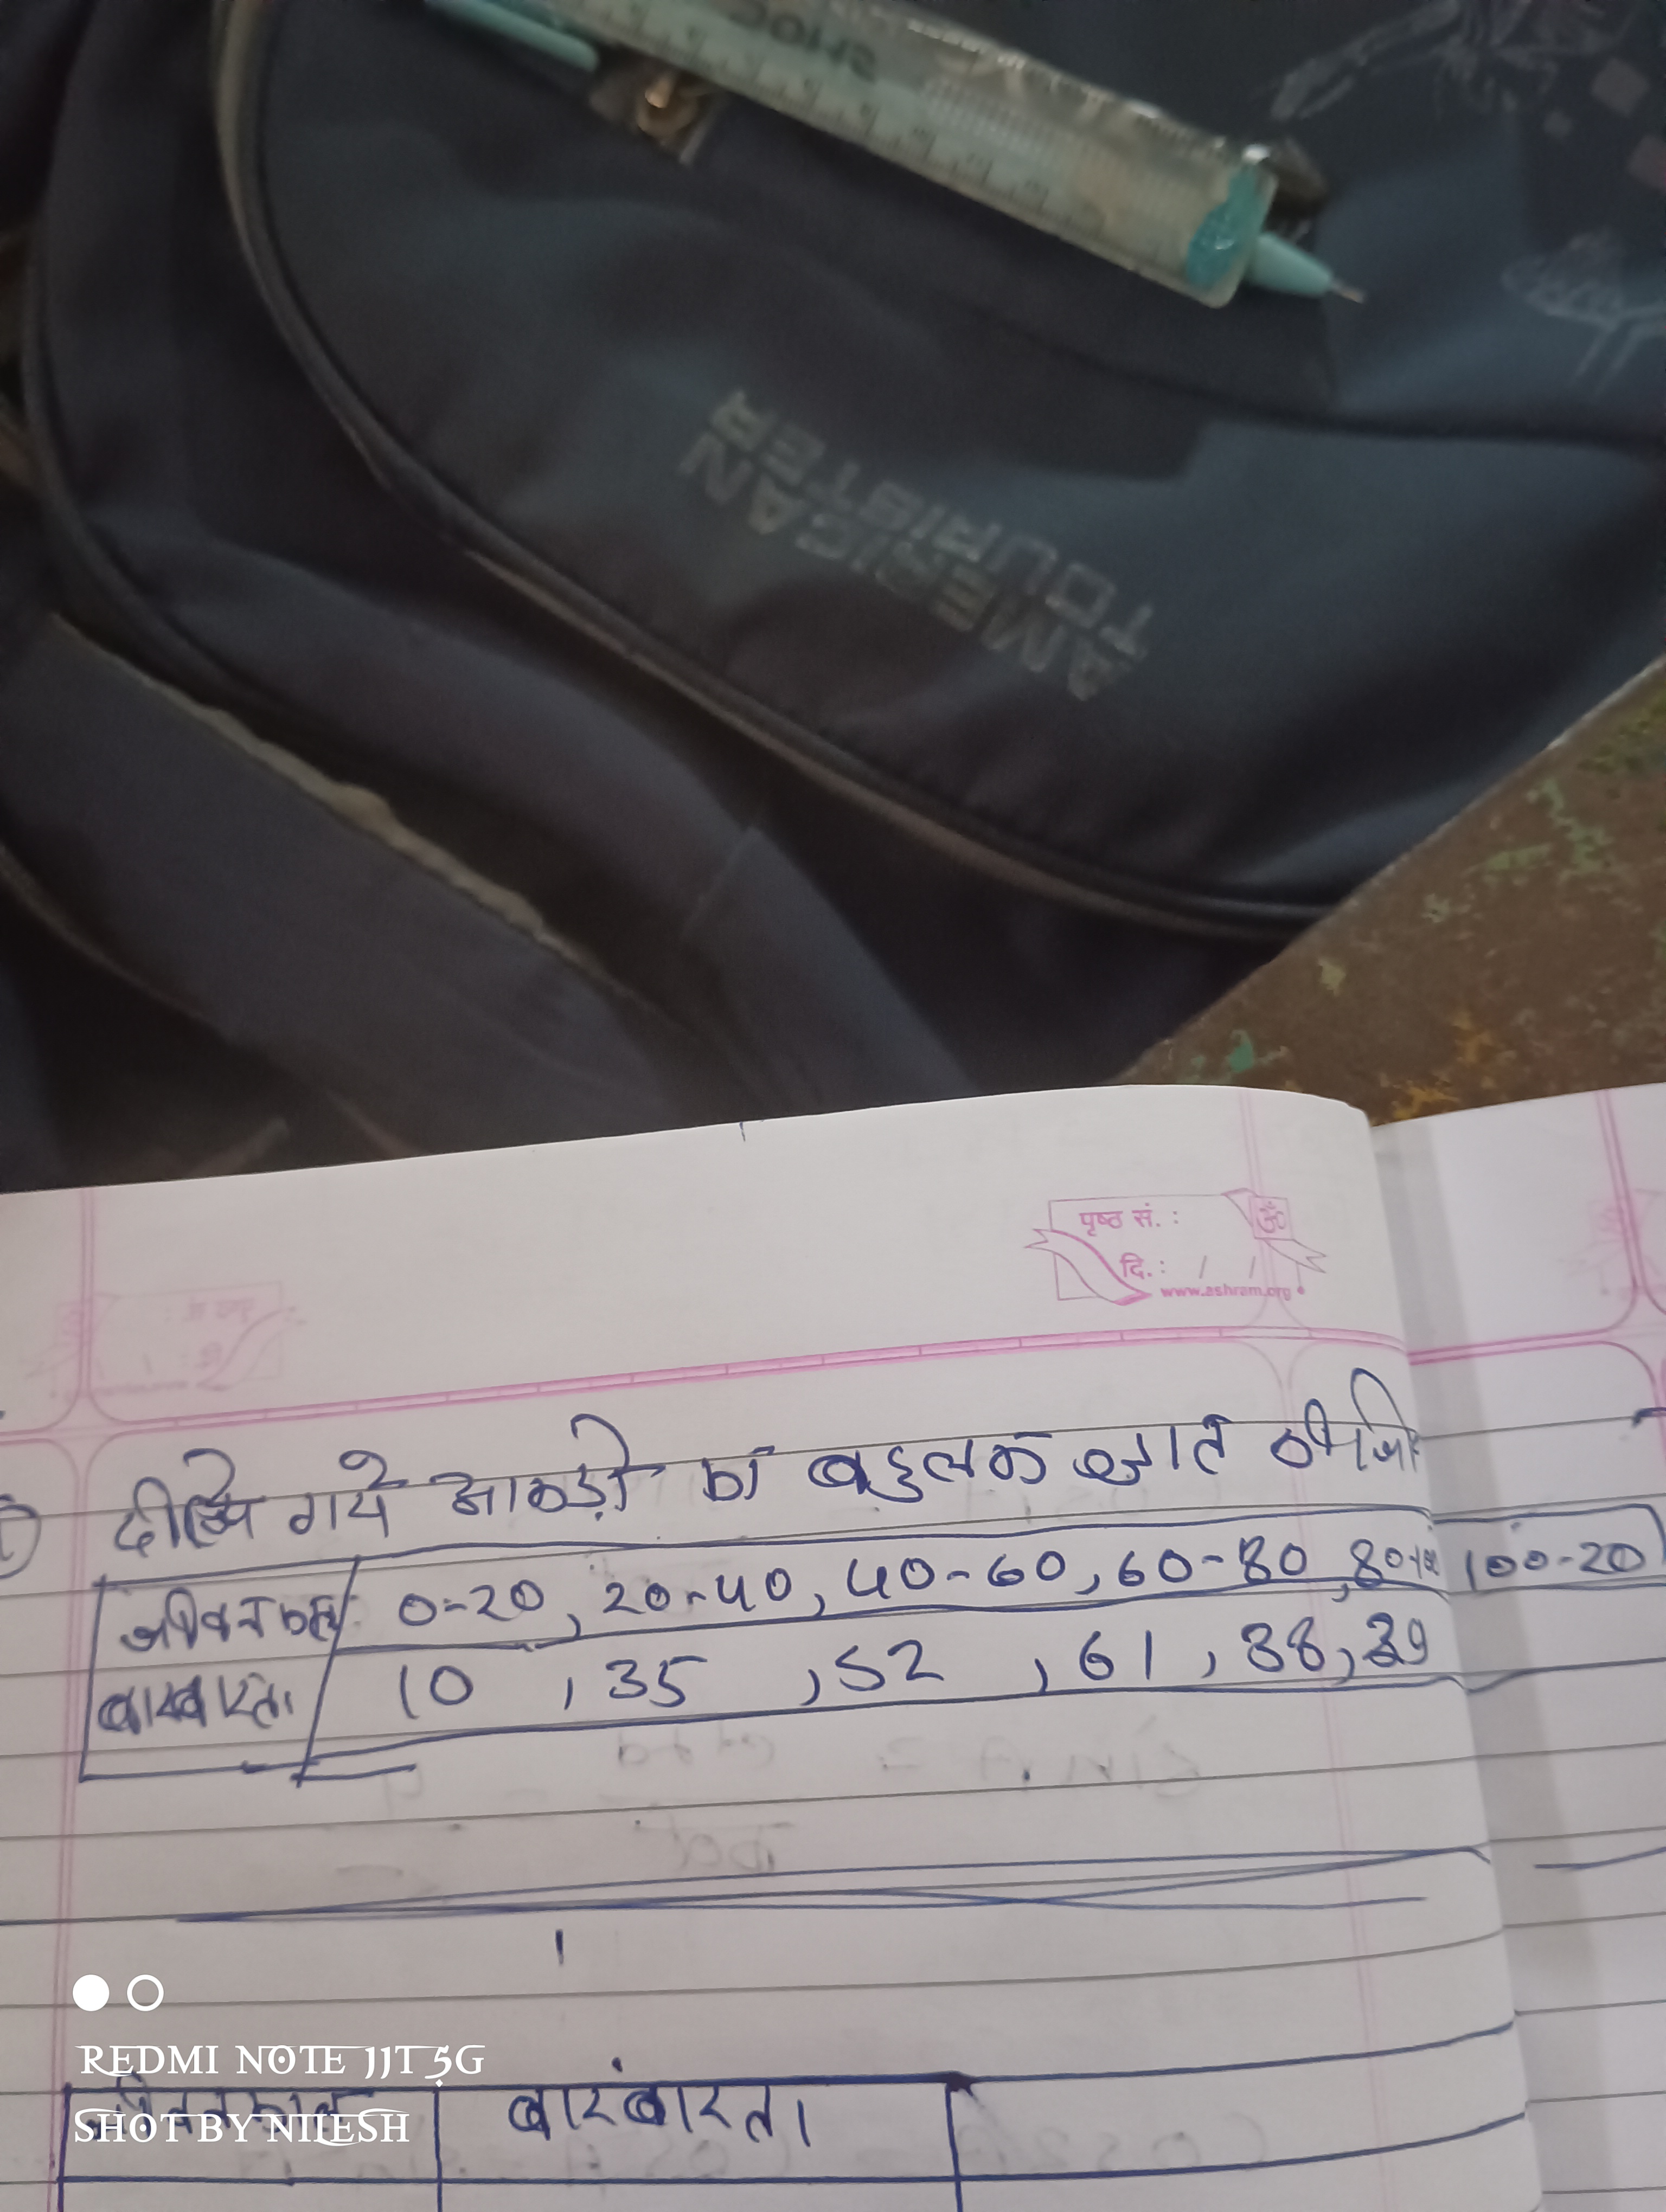 AMERICAN
TOURISTER
पृष्ठ सं. :
ॐ
दि. : / /
www.ashram.org
गये आकड़ो का बहुलक ज्ञात कीजि
जीवनकाल 0-20, 20-40, 40-60, 60-80, 100-20
10, 35, 52, 61, 38, 29
REDMI NOTE 11T 5G
जीवनकाल बारंबारता
SHOT BY NILESH